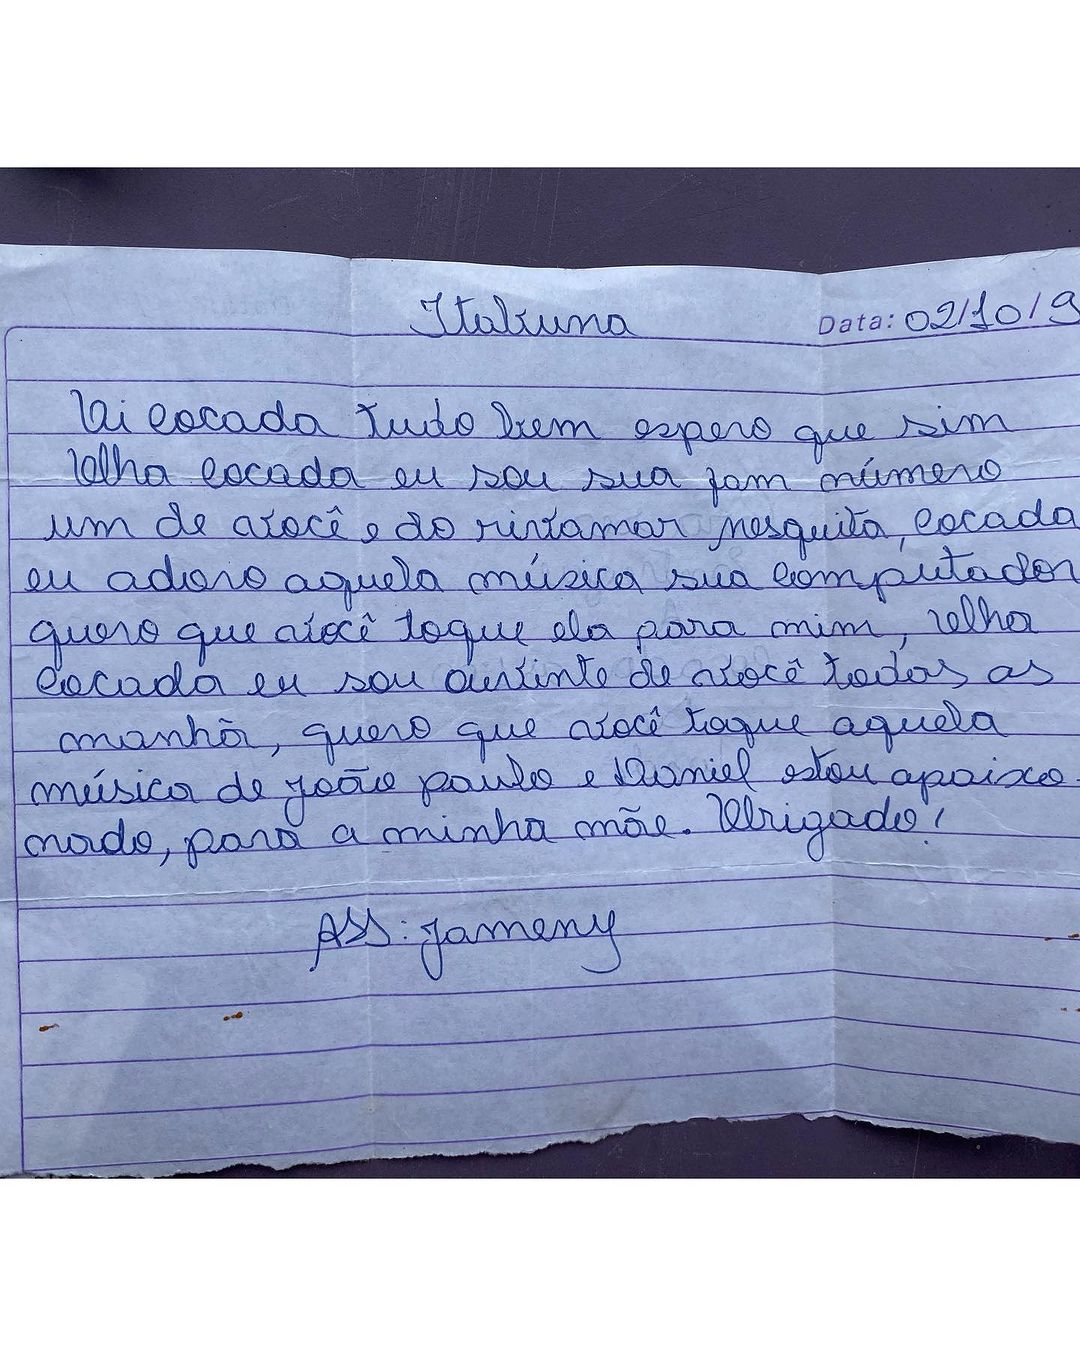 Itaiuna
Data: 02/10/9
Oi cocada tudo bem espero que sim
Olha cocada eu sou sua fam número
um de você e do rivamar mesquita, cocada
eu adoro aquela música sua computador
quero que você toque ela para mim, olha
cocada eu sou ouvinte de você todas as
manhã, quero que você toque aquela
música de joão paulo e Daniel estou apaixo-
nado, para a minha mãe. Obrigado!
ASS: jameny